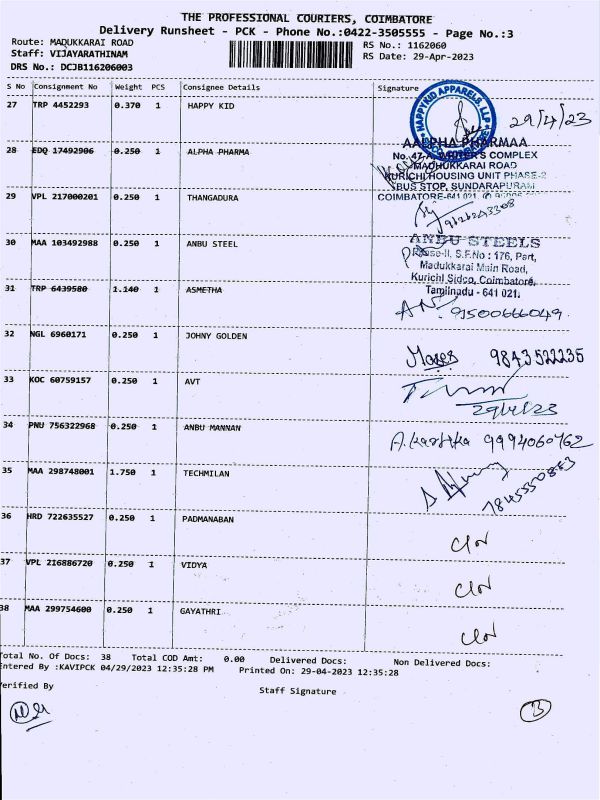 THE PROFESSIONAL COURIERS, COIMBATORE
Delivery Runsheet - PCK - Phone No.:0422-3505555 - Page No.:3
Route: MADUKKARAI ROAD RS No.: 1162060
Staff: VIJAYARATHINAM RS Date: 29-Apr-2023
DRS No.: DCJB116206003
S No Consignment No Weight PCS Consignee Details Signature
27 TRP 4452293 0.370 1 HAPPY KID
HAPPYKID APPARELS, LLP
29/4/23
28 EDQ 17492906 0.250 1 ALPHA PHARMA
AALPHA PHARMAA
COMPLEX
MADHUKKARAI ROAD
KURICHI HOUSING UNIT PHASE-2
BUS STOP, SUNDARAPURAM
COIMBATORE-641 021.
29 VPL 217000201 0.250 1 THANGADURA
30 MAA 103492988 0.250 1 ANBU STEEL
ANBU STEELS
Phase-II, S.F.No : 176, Part,
Madukkarai Main Road,
Kurichi Sidco, Coimbatore,
Tamilnadu - 641 021.
31 TRP 6439580 1.140 1 ASMETHA
9150066049
32 NGL 6960171 0.250 1 JOHNY GOLDEN
Moses 9843522235
33 KOC 60759157 0.250 1 AVT
29/4/23
34 PNU 756322968 0.250 1 ANBU MANNAN
A.karthka 9994060762
35 MAA 298748001 1.750 1 TECHMILAN
36 HRD 722635527 0.250 1 PADMANABAN
37 VPL 216886720 0.250 1 VIDYA
38 MAA 299754600 0.250 1 GAYATHRI
Total No. Of Docs: 38 Total COD Amt: 0.00 Delivered Docs: Non Delivered Docs:
Entered By :KAVIPCK 04/29/2023 12:35:28 PM Printed On: 29-04-2023 12:35:28
Verified By Staff Signature